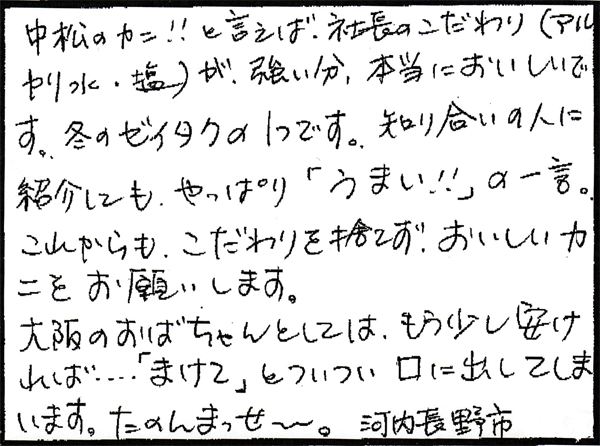 中松のカニ!!と言えば、社長のこだわり(アル
カリ水・塩)が、強い分、本当においしいで
す。冬のゼイタクの1つです。知り合いの人に
紹介しても、やっぱり「うまい!!」の一言。
これからも、こだわりを捨てず、おいしいカ
ニをお願いします。
大阪のおばちゃんとしては、もう少し安け
れば‥‥「まけて」とついつい口に出してしま
います。たのんまっせ〜〜。河内長野市